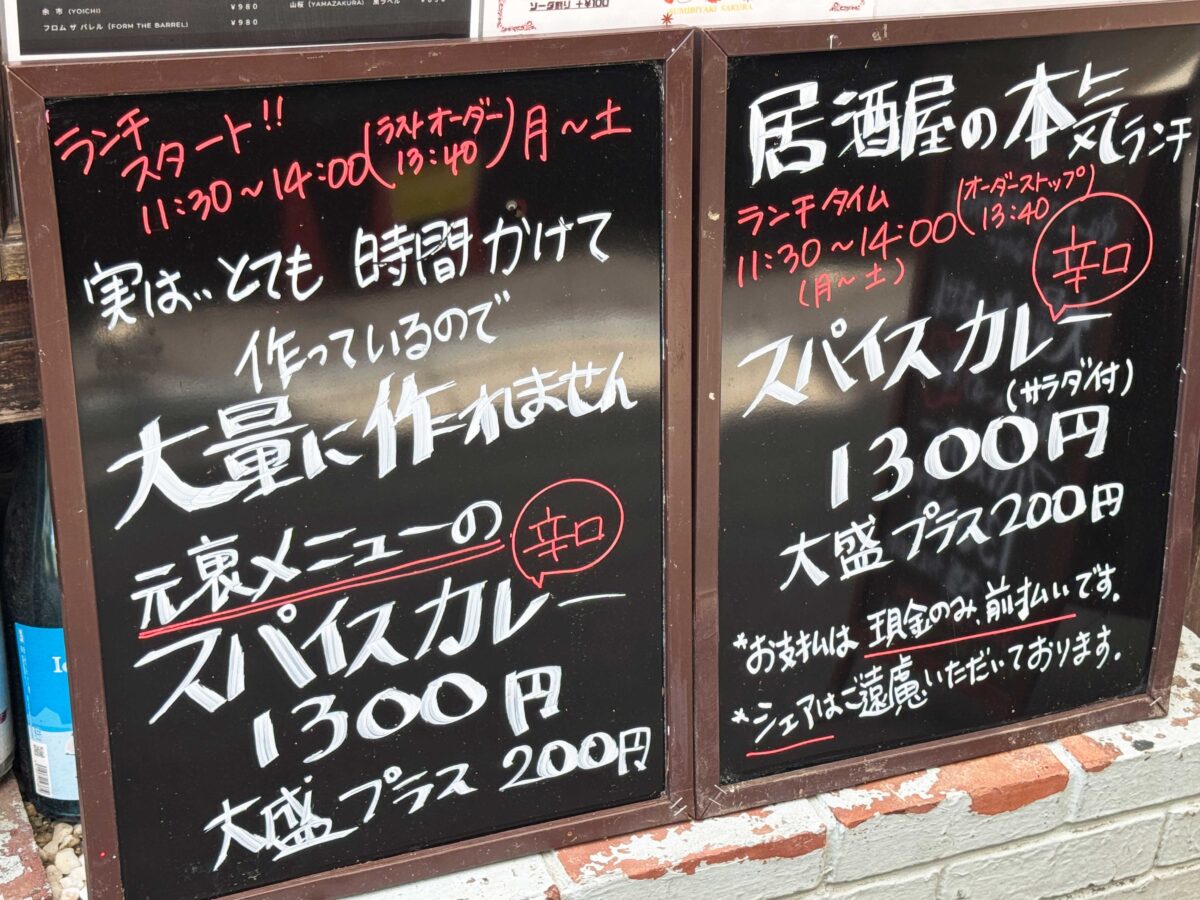 余市 (YOICHI) ¥980
山桜 (YAMAZAKURA)
フロム ザ バレル (FORM THE BARREL) ¥980
ソーダ割り +¥100
SUMIBIYAKI SAKURA
ランチ
スタート!!
11:30～14:00(ラストオーダー13:40)月～土
実は、とても時間かけて
作っているので
大量に作れません
元裏メニューの
辛口
スパイスカレー
1300円
大盛プラス200円
居酒屋の本気ランチ
ランチタイム
11:30～14:00(オーダーストップ13:40)
(月～土)
辛口
スパイスカレー
(サラダ付)
1300円
大盛プラス200円
*お支払は現金のみ、前払いです。
*シェアはご遠慮いただいております。